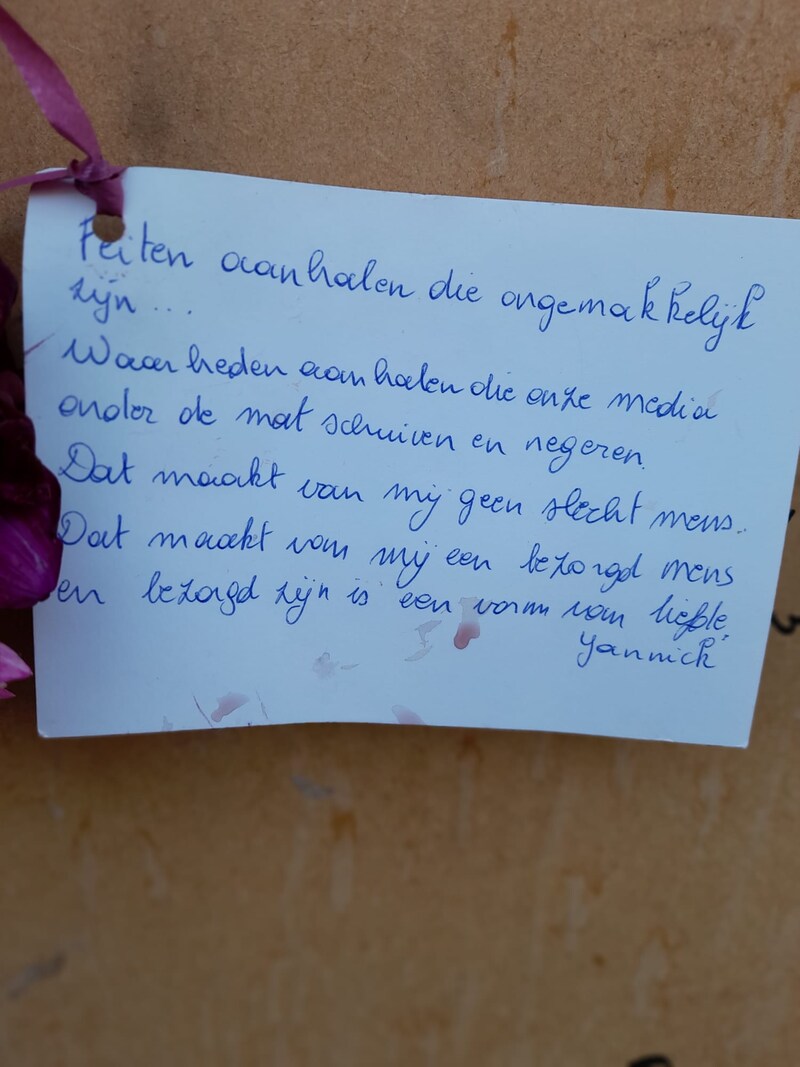 Feiten aanhalen die ongemakkelijk
zijn ...
Waarheden aanhalen die onze media
onder de mat schuiven en negeren.
Dat maakt van mij geen slecht mens.
Dat maakt van mij een bezorgd mens
en bezorgd zijn is een vorm van liefde.
Yannick